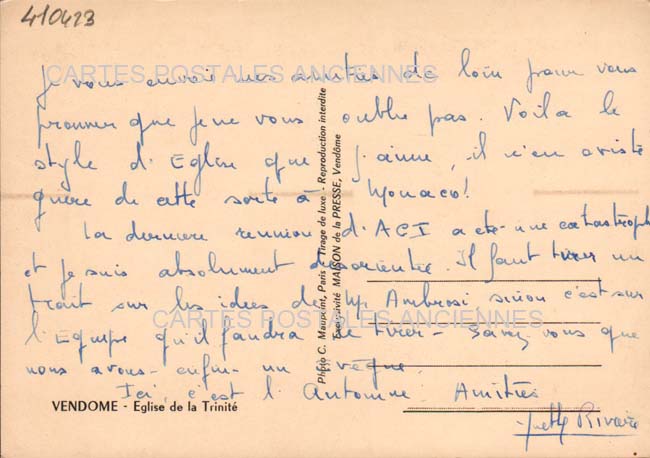 410423
Je vous envoi mes amitiés de loin pour vous
prouver que je ne vous oublie pas. Voila le
style d'Eglise que j'aime, il n'en existe
guère de cette sorte à Monaco!
La dernière reunion d'ACI a été une catastrophe
et je suis absolument désorientée. Il faut tirer un
trait sur les idées de Ambrosi sinon c'est sur
l'Equipe qu'il faudra le tirer - Savez vous que
nous avons - enfin - un
Ici, c'est l'Automne. Amitiés
Rivoire
VENDOME - Eglise de la Trinité
Photo C. Mauprint, Paris - Tirage de luxe - Reproduction interdite
Exclusivité MAISON de la PRESSE, Vendôme
CARTES POSTALES ANCIENNES
CARTES POSTALES ANCIENNES